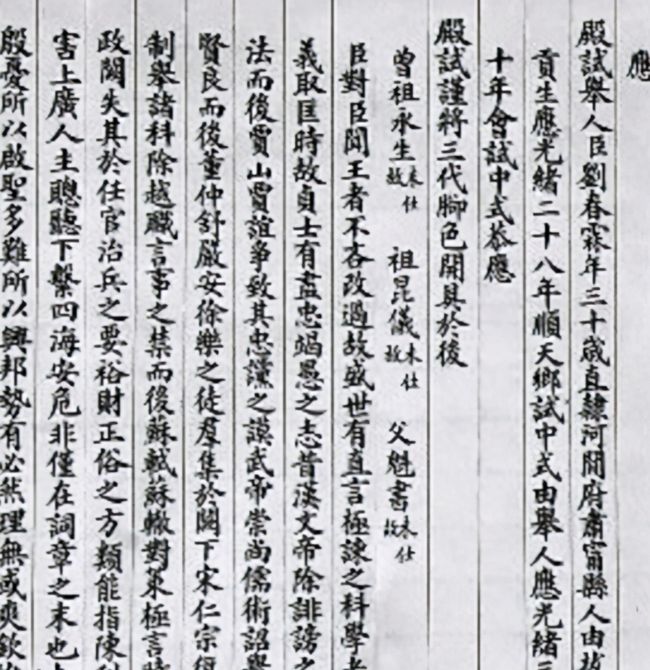 應
殿試舉人臣劉春霖年三十歲直隸河間府肅甯縣人由拔
貢生應光緒二十八年順天鄉試中式由舉人應光緒
十年會試中式恭應
殿試謹將三代腳色開具於後
曾祖永生未仕故 祖昆儀未仕故 父魁書未仕故
臣對臣聞王者不吝改過故盛世有直言極諫之科學者
義取匡時故貞士有盡忠竭愚之志昔漢文帝除誹謗之
法而後賈山賈誼爭致其忠讜之謨武帝崇尚儒術詔舉
賢良而後董仲舒嚴安徐樂之徒羣集於闕下宋仁宗
制舉諸科除越職言事之禁而後蘇軾蘇轍對策極言時
政闕失其於任官治兵之要裕財正俗之方類能指陳利
害上廣人主聰聽下繫四海安危非僅在詞章之末也
殷憂所以啟聖多難所以興邦勢有必然理無或爽欽